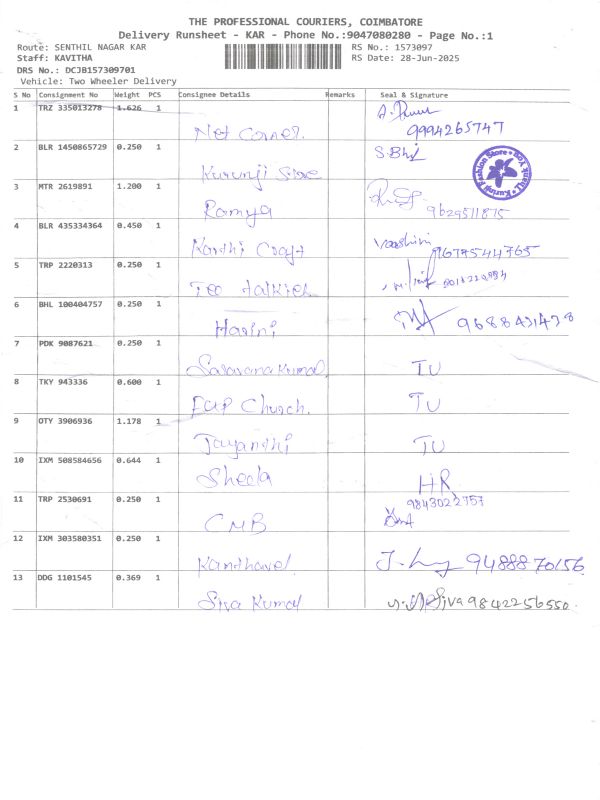 THE PROFESSIONAL COURIERS, COIMBATORE
Delivery Runsheet - KAR - Phone No.:9047080280 - Page No.:1
Route: SENTHIL NAGAR KAR RS No.: 1573097
Staff: KAVITHA RS Date: 28-Jun-2025
DRS No.: DCJB157309701
Vehicle: Two Wheeler Delivery
S No Consignment No Weight PCS Consignee Details Remarks Seal & Signature
1 TRZ 335013278 1.626 1
Net Corner. 9994265747
2 BLR 1450865729 0.250 1 S.Bhj
Kurunji Store
Kurinji Fashion Store Thank You
3 MTR 2619891 1.200 1
Ramya 9629511875
4 BLR 435334364 0.450 1
Karthi Craft 9677544765
5 TRP 2220313 0.250 1
Tee talkies
6 BHL 100404757 0.250 1
Harini 9688431478
7 PDK 9087621 0.250 1
Saravana Kumar TU
8 TKY 943336 0.600 1
EAP Church. TU
9 OTY 3906936 1.178 1
Jayandhi TU
10 IXM 508584656 0.644 1
Sheela HR
11 TRP 2530691 0.250 1 9843022757
CMB
12 IXM 303580351 0.250 1
Kandhavel 9488870156
13 DDG 1101545 0.369 1
Siva Kumar Siva 9842256550